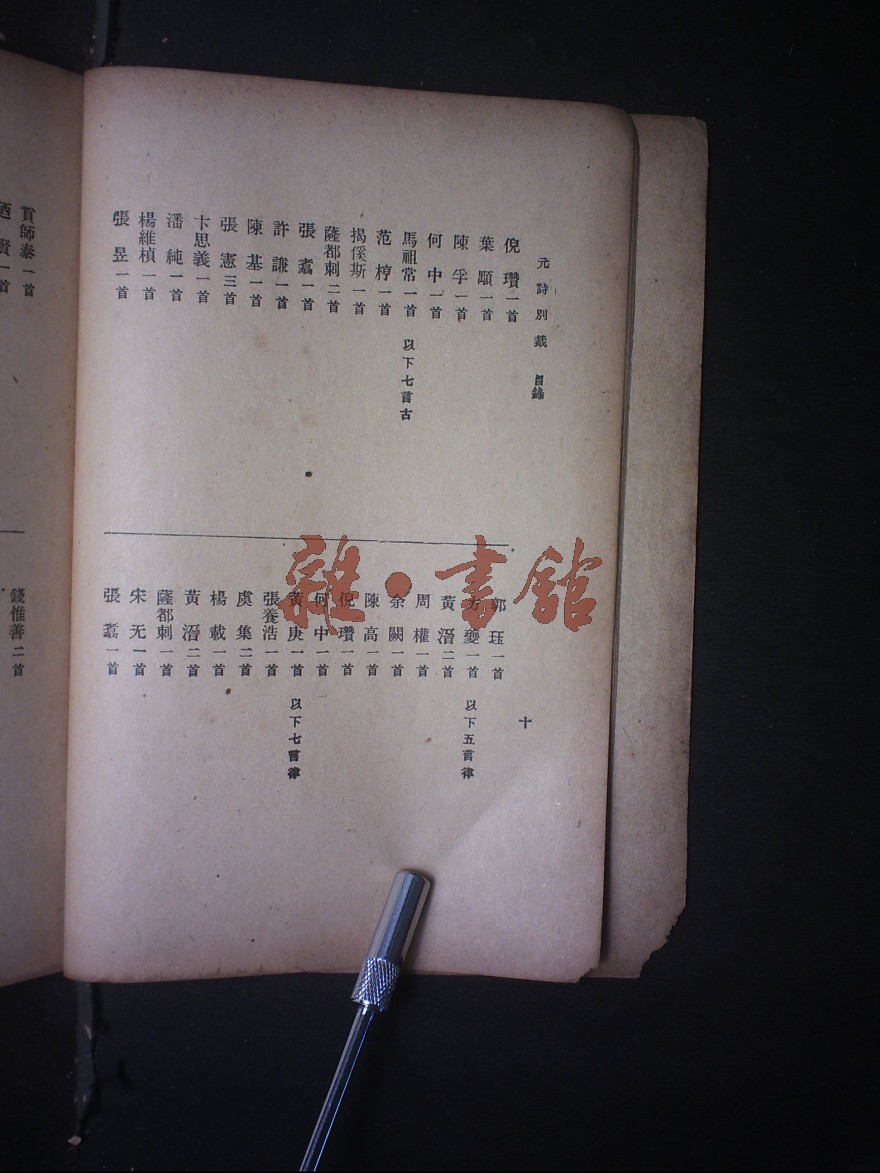 元詩別裁 目錄
倪瓚一首
葉顒一首
陳孚一首
何中一首
馬祖常一首 以下七言古
范梈一首
揭傒斯一首
薩都剌二首
張翥一首
許謙一首
陳基一首
張憲三首
卞思義一首
潘純一首
楊維楨一首
張昱一首
十
郭珏一首
方夔一首 以下五言律
黃溍二首
周權一首
余闕一首
陳高一首
倪瓚一首
何中一首
黃庚一首 以下七言律
張養浩一首
虞集二首
楊載一首
黃溍二首
薩都剌一首
宋无一首
張翥一首
貢師泰一首
迺賢一首
錢惟善二首
雜·書館